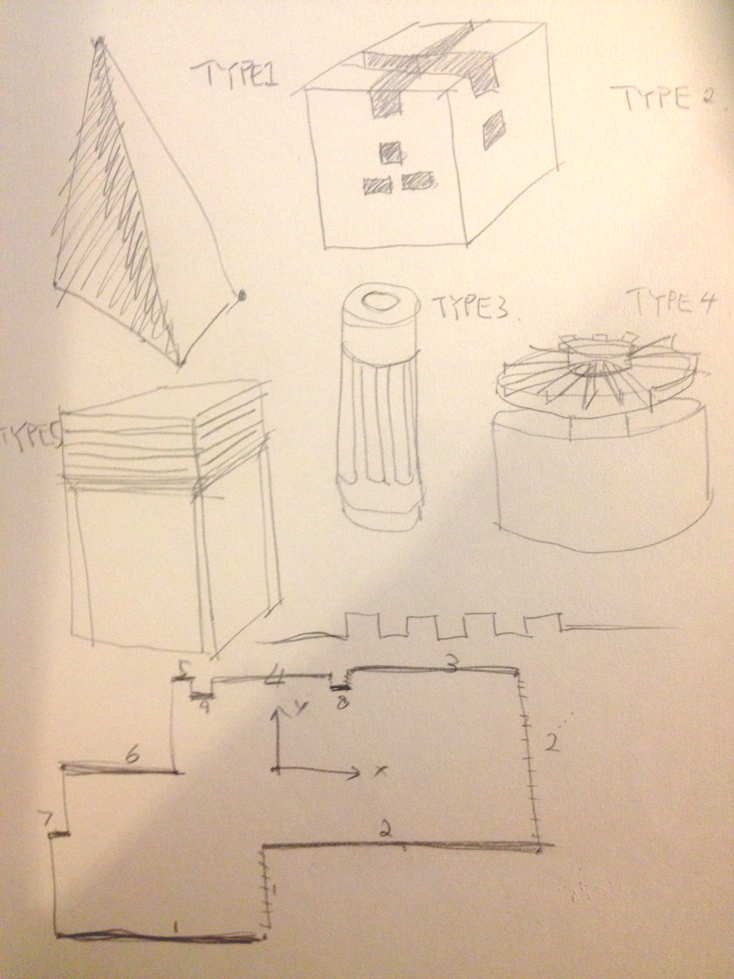 TYPE1
TYPE 2
TYPE3
TYPE 4
TYPE5
5
4
3
9
8
y
6
x
2
7
2
1
1